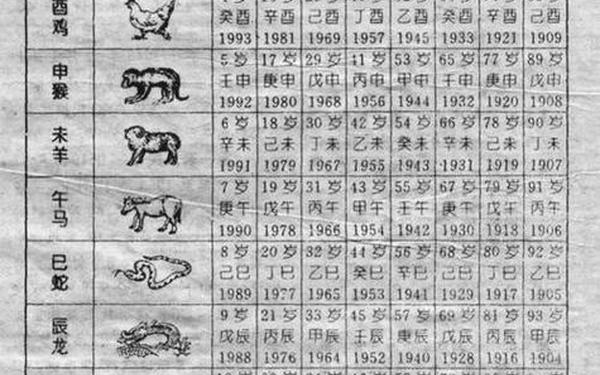 酉鸡
癸酉 辛酉 己酉 丁酉 乙酉 癸酉 辛酉 己酉
1993 1981 1969 1957 1945 1933 1921 1909
申猴
5岁 17岁 29岁 41岁 53岁 65岁 77岁 89岁
壬申 庚申 戊申 丙申 甲申 壬申 庚申 戊申
1992 1980 1968 1956 1944 1932 1920 1908
未羊
6岁 18岁 30岁 42岁 54岁 66岁 78岁 90岁
辛未 己未 丁未 乙未 癸未 辛未 己未 丁未
1991 1979 1967 1955 1943 1931 1919 1907
午马
7岁 19岁 31岁 43岁 55岁 67岁 79岁 91岁
庚午 戊午 丙午 甲午 壬午 庚午 戊午 丙午
1990 1978 1966 1954 1942 1930 1918 1906
巳蛇
8岁 20岁 32岁 44岁 56岁 68岁 80岁 92岁
己巳 丁巳 乙巳 癸巳 辛巳 己巳 丁巳 乙巳
1989 1977 1965 1953 1941 1929 1917 1905
辰龙
9岁 21岁 33岁 45岁 57岁 69岁 81岁 93岁
戊辰 丙辰 甲辰 壬辰 庚辰 戊辰 丙辰 甲辰
1988 1976 1964 1952 1940 1928 1916 1904